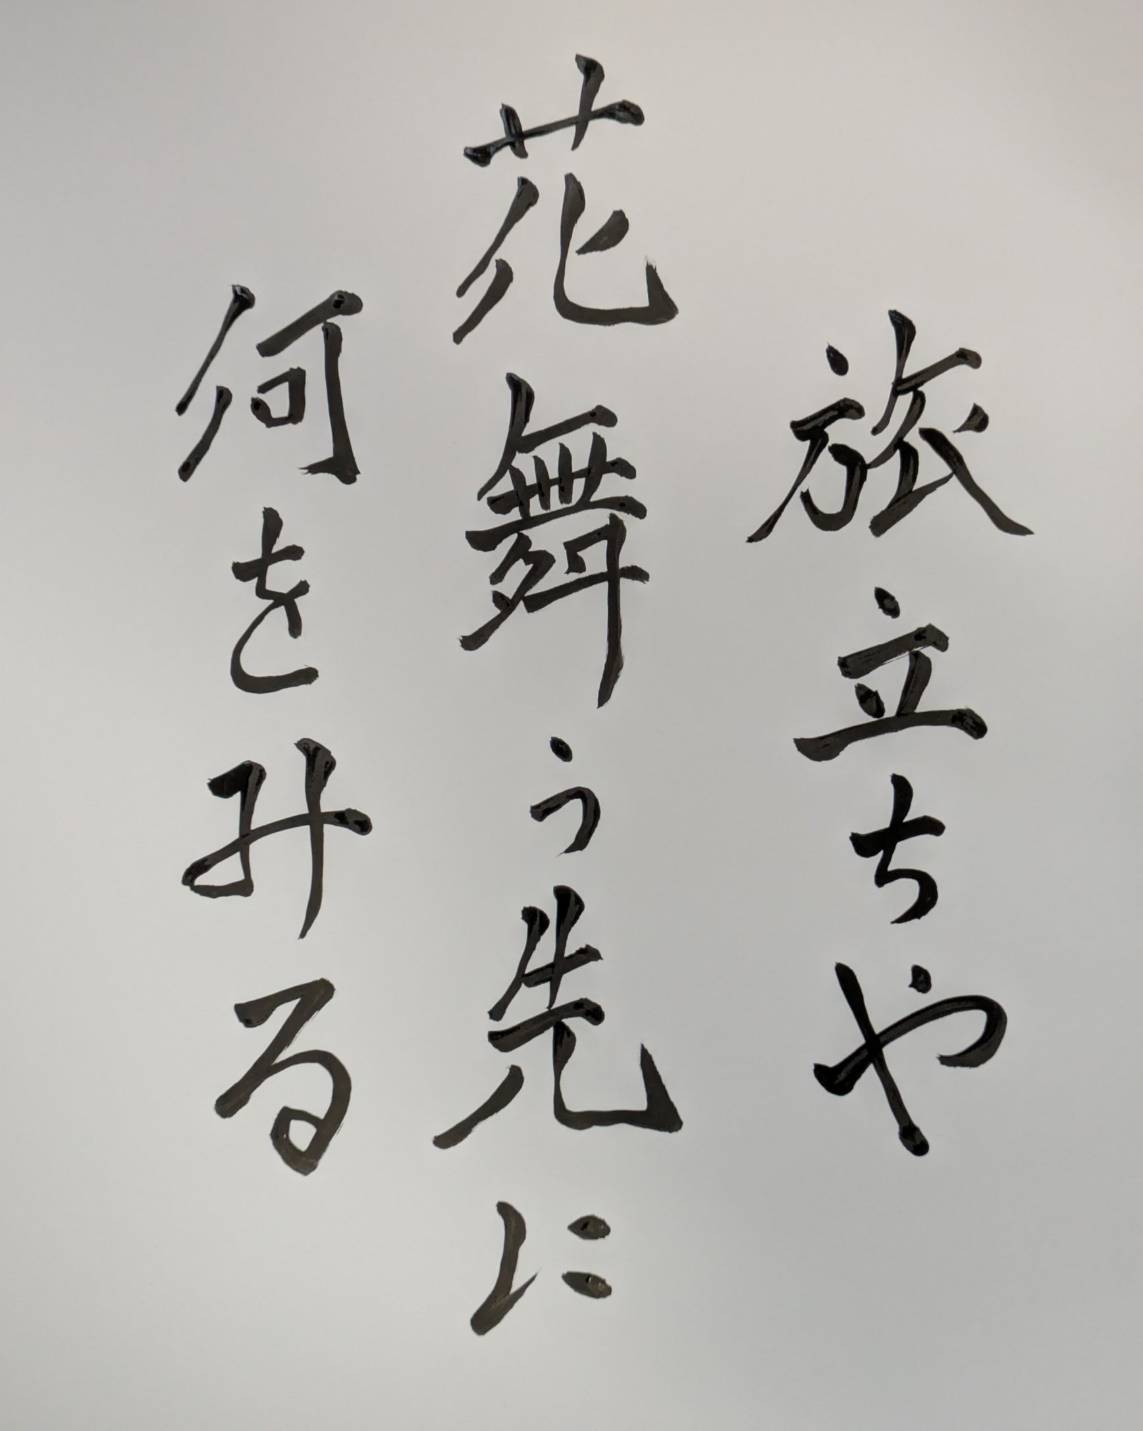 旅立ちや
花舞う先に
何をみる